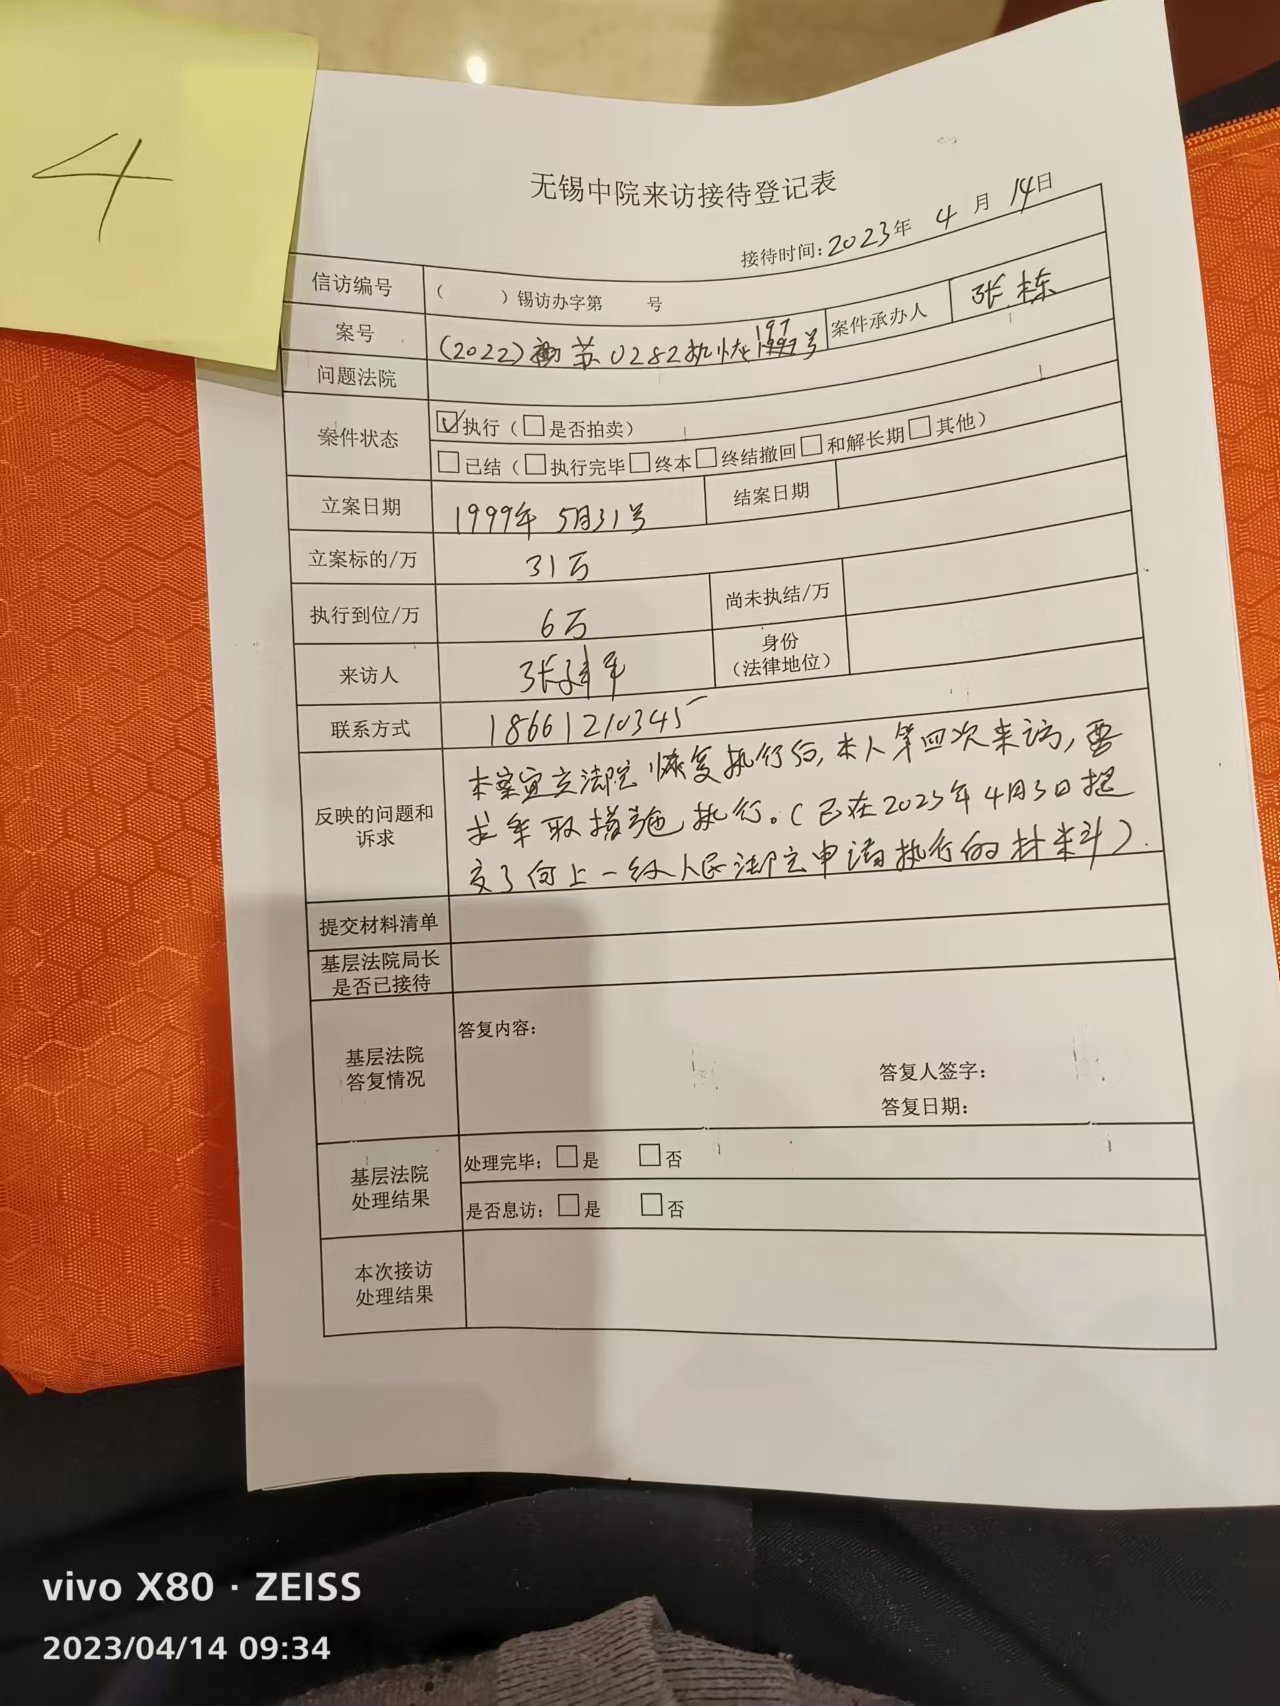 4
无锡中院来访接待登记表
接待时间：2023年 4 月 14日
信访编号 （ ）锡访办字第 号
案号 （2022）苏0282执恢197号 案件承办人 张栋
问题法院
案件状态 ☑执行（□是否拍卖）
□已结（□执行完毕□终本□终结撤回□和解长期□其他）
立案日期 1999年5月31号 结案日期
立案标的/万 31万
执行到位/万 6万 尚未执结/万
来访人 张建军 身份
（法律地位）
联系方式 18661210345
反映的问题和
诉求
本案宜兴法院恢复执行后，本人第四次来访，要
求采取措施执行。（已在2023年4月3日提
交了向上一级人民法院申请执行的材料）.
提交材料清单
基层法院局长
是否已接待
基层法院
答复情况
答复内容：
答复人签字：
答复日期：
基层法院
处理结果
处理完毕：□是 □否
是否息访：□是 □否
本次接访
处理结果
vivo X80 · ZEISS
2023/04/14 09:34